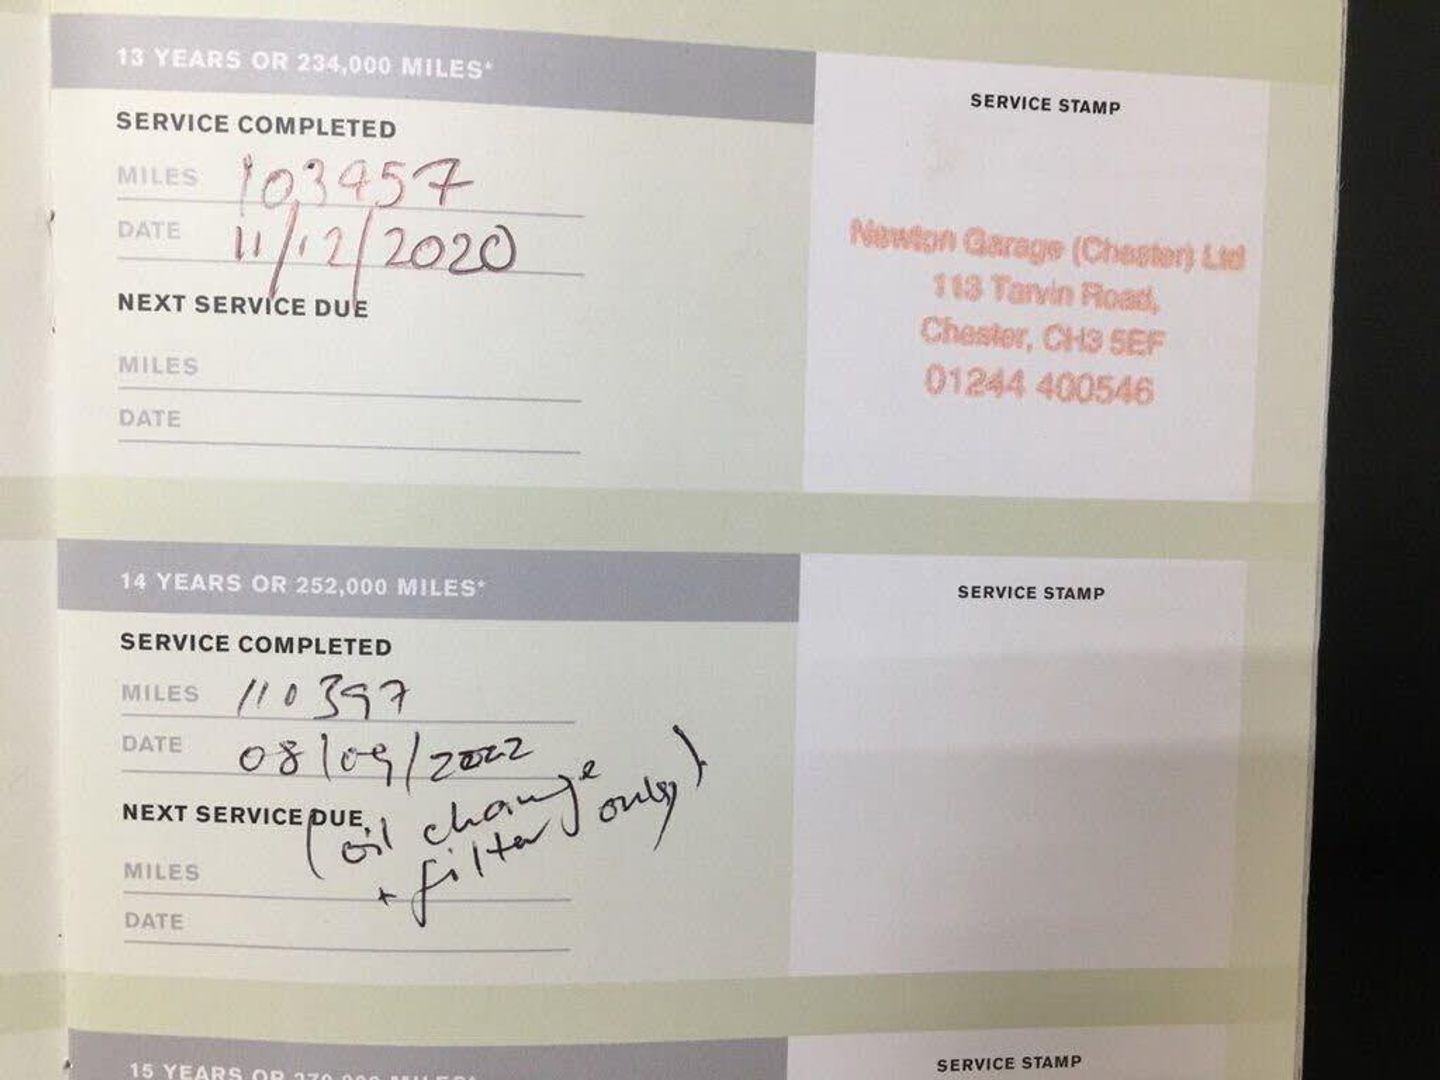 13 YEARS OR 234,000 MILES*
SERVICE STAMP
SERVICE COMPLETED
MILES 103957
DATE 11/12/2020
NEXT SERVICE DUE
MILES
DATE
Newton Garage (Chester) Ltd
113 Tarvin Road,
Chester, CH3 5EF
01244 400546
14 YEARS OR 252,000 MILES*
SERVICE STAMP
SERVICE COMPLETED
MILES 110397
DATE 08/09/2022
NEXT SERVICE DUE
(oil change
+ filter only)
MILES
DATE
15 YEARS OR 270,000 MILES*
SERVICE STAMP